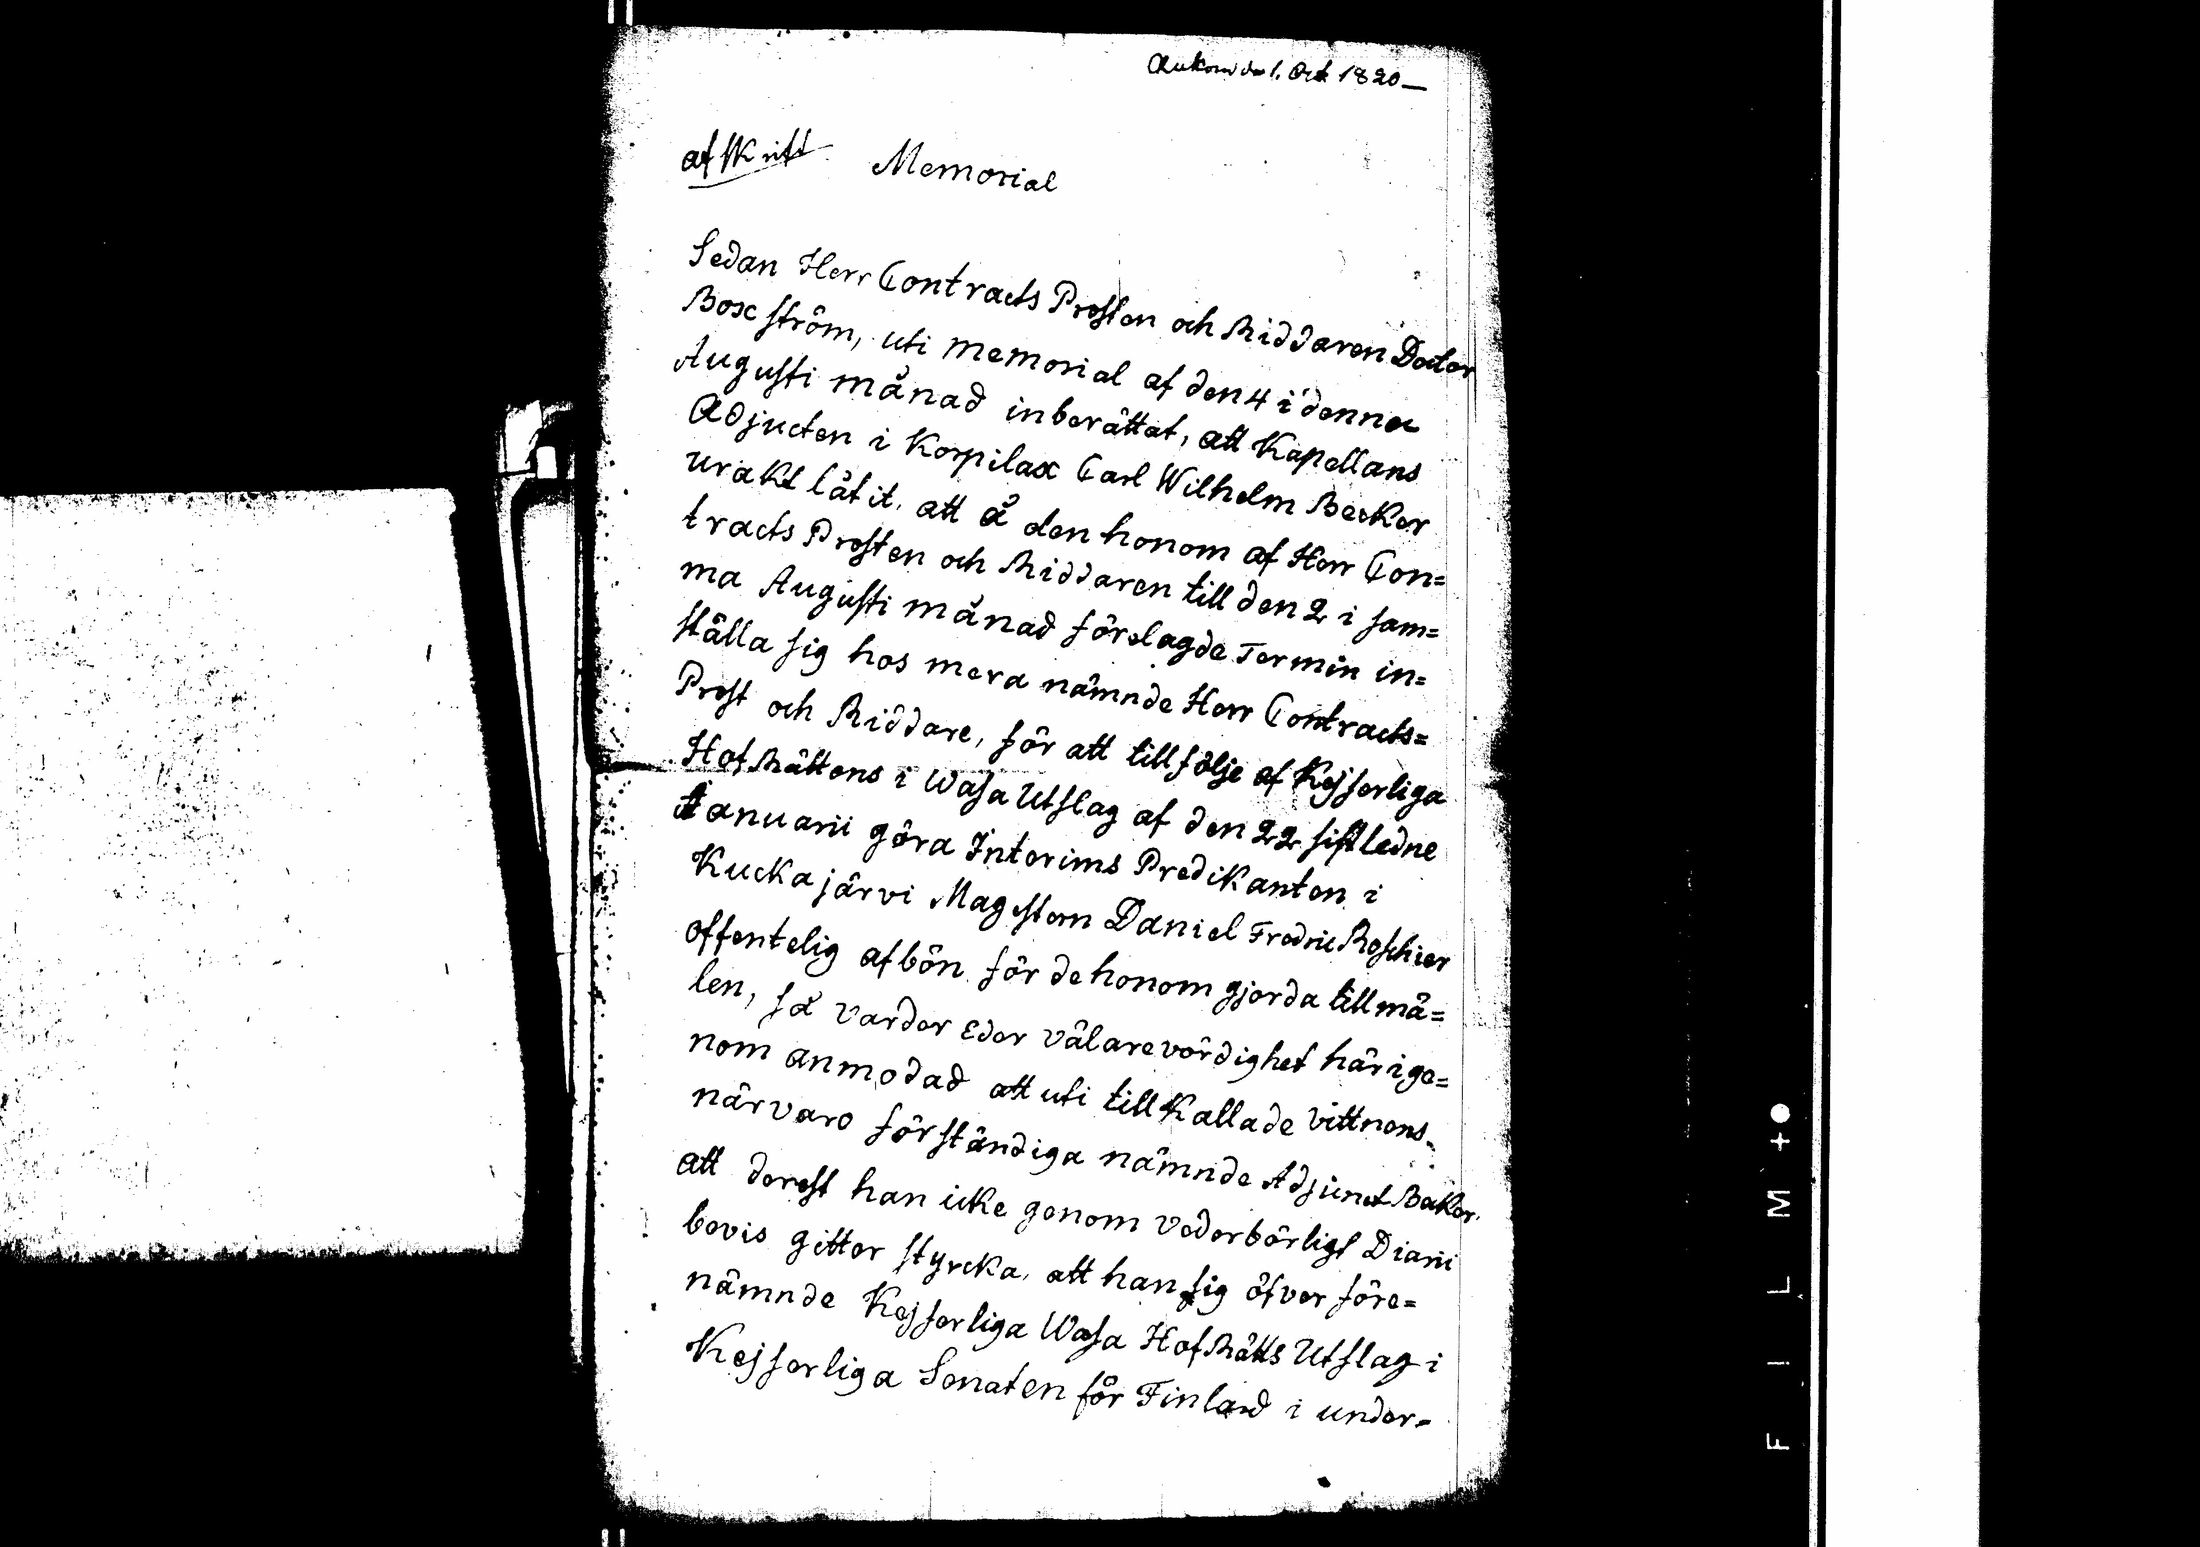 Ankom den 1. Oct 1820_
afskrift Memorial
Sedan Herr Contracts Prosten och Riddaren Doctor
Boxström, uti memorial af den 4 i denna
Augusti månad inberättat, att Kapellans
Adjucten i Korpilax Carl Wilhelm Becker
urakt låtit, att å den honom af Herr Con=
tracts Prosten och Riddaren till den 2 i sam=
ma Augusti månad förelagde Termin in=
ställa sig hos mera nämnde Herr Contracts=
Prost och Riddare, för att till följe af Kejserliga
Hof Rättens i Wasa Utslag af den 22 sistledne
Januarii göra Interims Predikanten i
Kuckajärvi Magistern Daniel Fredric Roschier
offentelig afbön för de honom gjorda tillmä=
len, så varder Eder välarevördighet härige=
nom anmodad att uti till Kallade vittnens
närvaro förständiga nämnde Adjunct Becker
att derest han icke genom vederbörligt Diarii
bevis gitter styrcka, att han sig öfver före=
nämnde Kejserliga Wasa Hof Rätts Utslag i
Kejserliga Senaten för Finland i under=
FILM